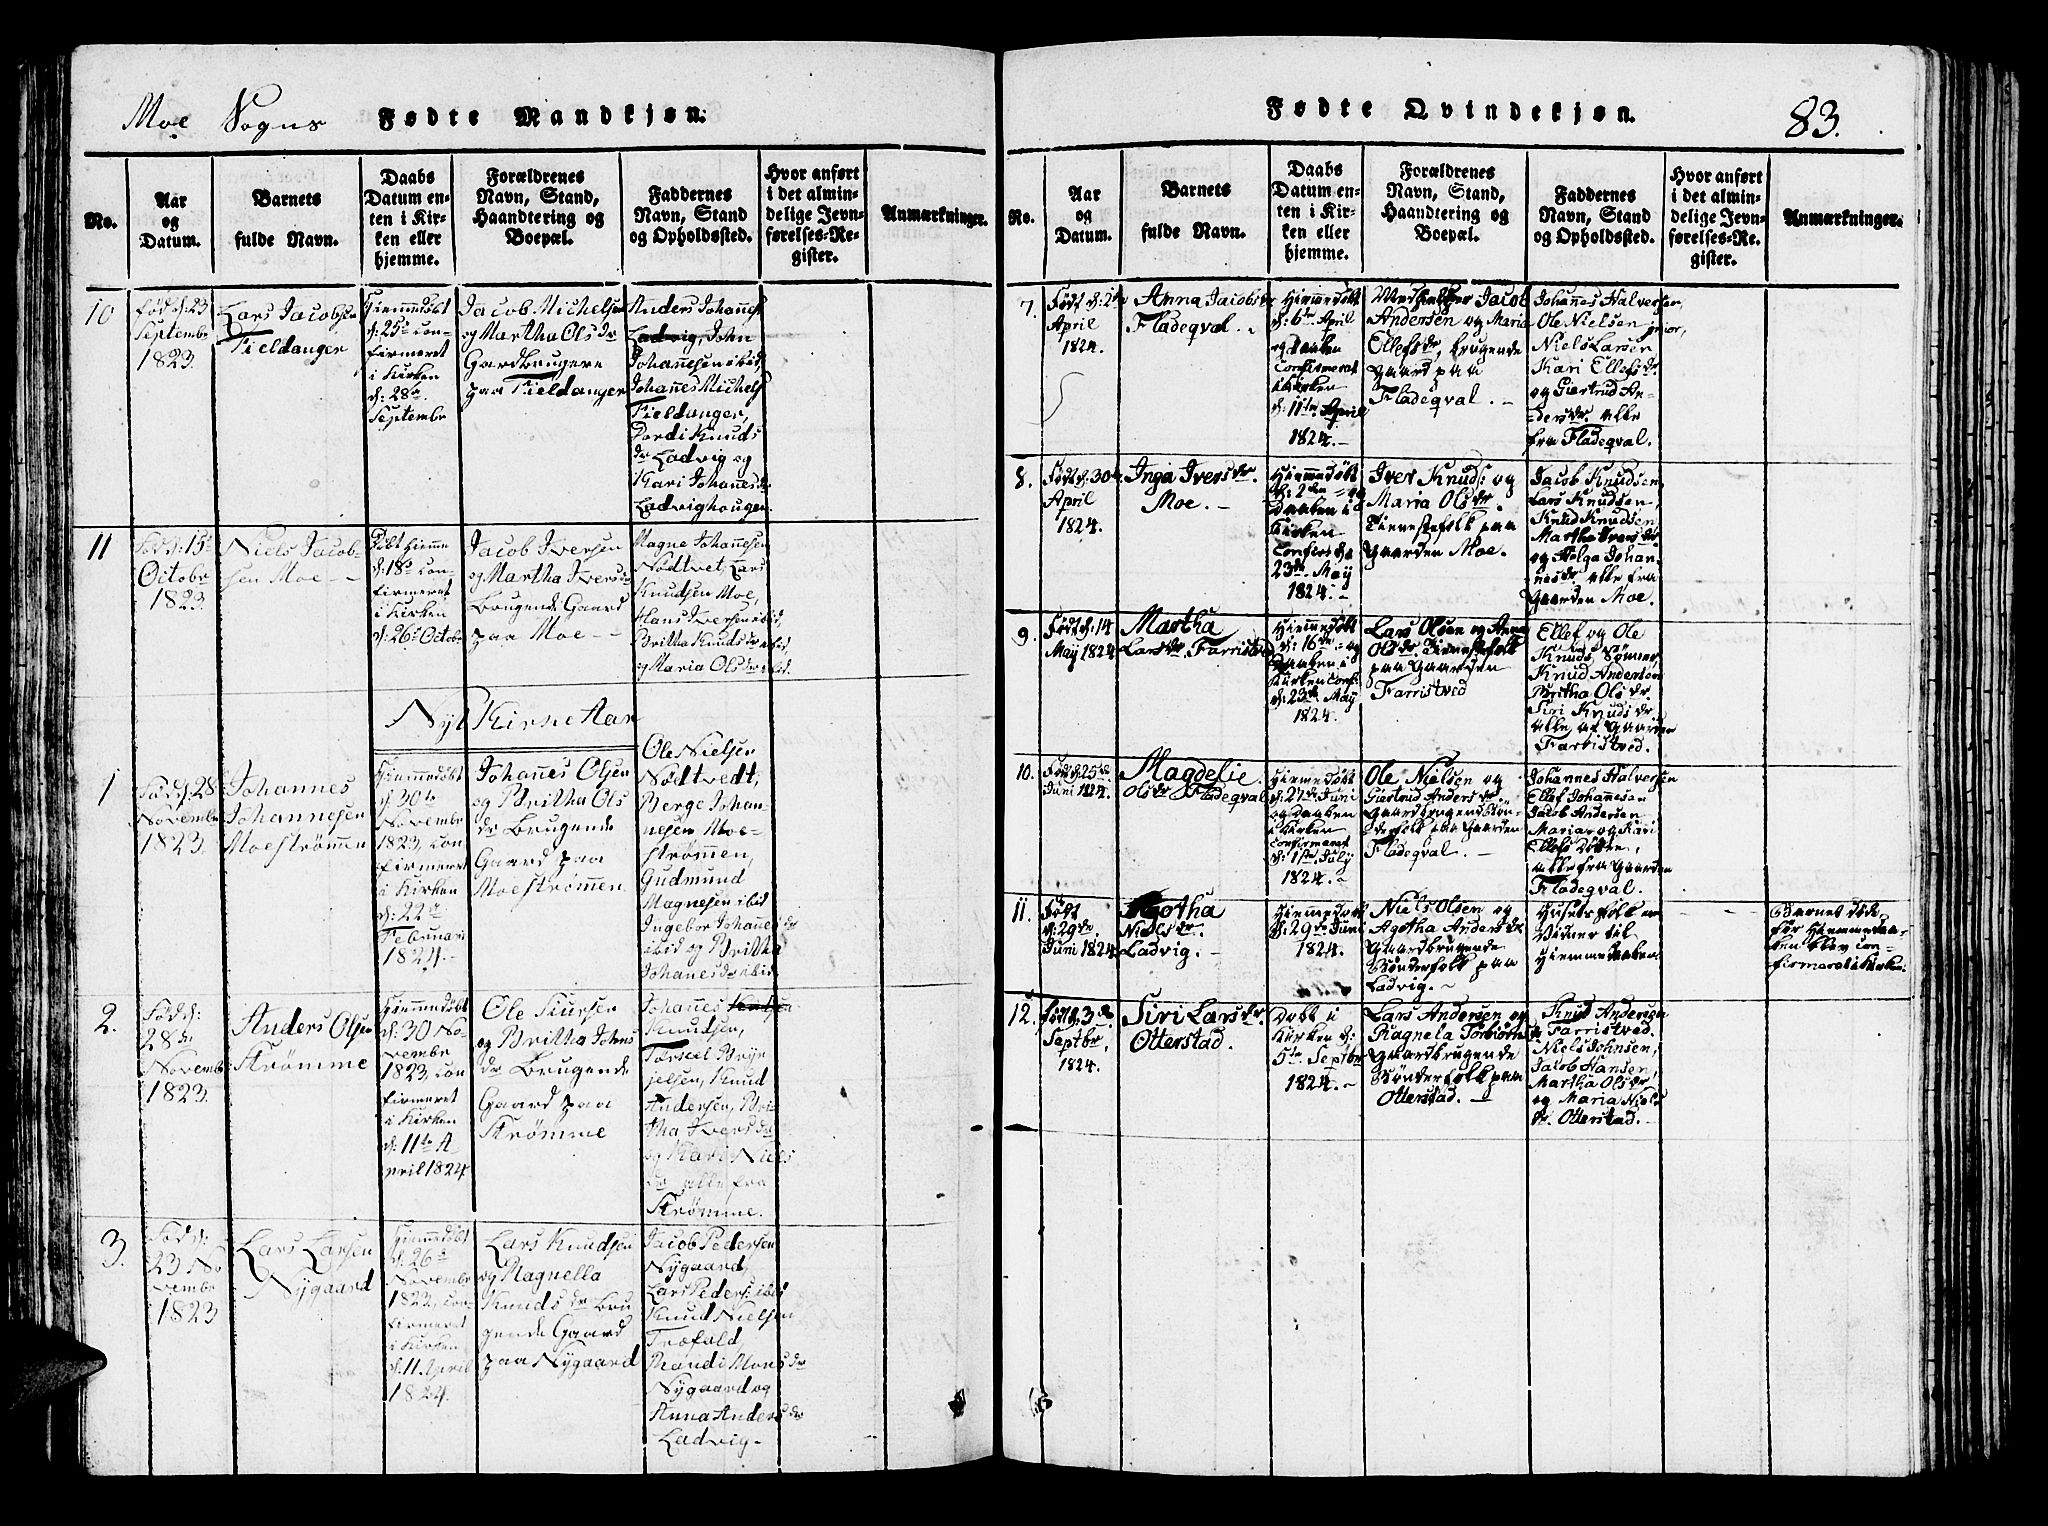 Moe Sogns Fødte Mandkjøn.
No.
Aar
og
Datum.
Barnets
fulde Navn.
Daabs
Datum en-
ten i Kir-
ken eller
hjemme.
Forældrenes
Navn, Stand,
Haandtering og
Boepæl.
Faddernes
Navn, Stand
og Opholdssted.
Hvor anført
i det almin-
delige Jevn-
førelses-Re-
gister.
Anmærkninger.
10
fød d: 23
Septembr
1823.
Lars Jacobsen
Fieldanger
Hiemmedøbt
d: 25de con-
firmeret
i Kirken
d: 28de
Septembr
Jacob Michelsen
og Martha Olsdr
Gaardbrugere
paa Fieldanger
Anders Johannes
Ladvig, John
Johannesen ibid,
Johannes Michels
Fieldanger,
Dordi Knuds
dr Ladvig og
Kari Johanesdr
Ladvighougen.
11
Fød d: 15de
Octobr
1823.
Niels Jacob-
sen Moe -
Døbt hiemme
d: 18de con-
firmeret
i Kirken
d: 26de Octobr
Jacob Iversen
og Martha Iversdr
Brugende Gaard
paa Moe -
Magne Johannesen
Nødtvet, Lars
Knudsen Moe,
Hans Iversen ibid,
Britha Knudsdr ibid,
og Maria Olsdr ibid.
Nyt Kirke Aar
1
Fød d: 28
Novembr
1823.
Johannes
Johannesen
Moestrømmen
Hiemmedøbt
d: 30te
Novembr
1823, con
firmeret
i Kirken
d: 22de
Februari
1824.
Johannes Olsen
og Britha Ols
dr Brugende
Gaard paa
Moestrømmen
Ole Nielsen
Nødtvedt,
Berge Johan-
nesen Moe-
strømmen,
Gudmund
Magnesen ibid
Ingebor Johanesdr
ibid og Britha
Johanesdr ibid.
2.
Fød d:
28de
Novembr
1823.
Anders Olsen
Strømme
Hiemmedøbt
d: 30 No-
vembr
1823, con
firmeret
i Kirken
d: 11te A
pril 1824
Ole Siursen
og Britha Johns
dr Brugende
Gaard paa
Strømme
Johanes
Knudsen,
Torkiel Bryn
jelsen, Knud
Andersen, Bri-
tha Iversdr
og Kari Niels
dr alle fra
Strømme.
3.
Fød d:
23 No
vembr
1823
Lars Larsen
Nygaard
Hiemmedøbt
d: 26de
Novembr
1823, con-
firmeret
i Kirken
d: 11 April
1824.
Lars Knudsen
og Ragnella
Knudsdr Bru
gende Gaard
paa Nygaard
Jacob Pedersen
Nygaard,
Lars Peders: ibid
Knud Nielsen
Træfald,
Randi Monsdr
Nygaard og
Anna Andersdr
Ladvig-
Fødte Qvindekjøn.
83.
No.
Aar
og
Datum.
Barnets
fulde Navn.
Daabs
Datum en-
ten i Kir-
ken eller
hjemme.
Forældrenes
Navn, Stand,
Haandtering og
Boepæl.
Faddernes
Navn, Stand
og Opholdssted.
Hvor anført
i det almin-
delige Jevn-
førelses-Re-
gister.
Anmærkninger.
7.
Født d: 2de
April
1824.
Anna Jacobsdr
Fladeqval.
Hiemmedøbt
d: 6te April
og Daaben
Confirmeret
i Kirken
d: 11te April
1824.-
Medhielper Jacob
Andersen og Maria
Ellefsdr, brugende
Gaard paa
Fladeqval. -
Johanes Halversen,
Ole Nielsen junior,
Niels Larsen
Kari Ellefsdr.
og Giertrud An-
dersdr. alle
fra Fladeqval.
8.
Født d: 30te
April
1824.
Inga Iversdr.
Moe. -
Hiemmedøbt
d: 2den og
Daaben i
Kirken
Confir: d:
23de May
1824.-
Iver Knuds: og
Maria Olsdr.
Tienestefolk paa
Gaarden Moe.
Jacob Knudsen,
Lars Knudsen,
Knud Knudsen,
Martha Iversdr.
og Helga Johan-
nesdr. alle fra
Gaarden Moe.
9.
Født d: 14
May 1824
Martha
Larsdr. Farristved
Hiemmedøbt
d: 16de og
Daaben i
Kirken Conf:
d: 23de May
1824.
Lars Olsen og Anna
Olsdr. Tienestefolk
paa Gaarden
Farristved
Ellef og Ole
Knuds Sønner,
Knud Andersen
Britha Olsdr.
Siri Knudsdr.
alle af Gaarden
Farristved.
10.
Født d: 25de
Juni 1824.
Magdelie
Olsdr Fladeqval
Hiemmedøbt
d: 27de Juni
og Daaben
i Kirken
Confirmeret
d: 1ste July
1824.-
Ole Nielsen og
Giertrud Andersdr.
Gaardbrugende Bøn-
derfolk paa Gaarden
Fladeqval. -
Johannes Halversen
Ellef Johannesen
Jacob Andersen
Maria og Kari
Ellefs Døttre,
alle fra Gaarden
Fladeqval.
11.
Født
d: 29de
Juni 1824
Agotha
Nielsdr.
Ladvig. -
Hiemmedøbt
d: 29de Juni
1824.
Niels Olsen og
Agotha Andersdr
Gaardbrugende
Bønderfolk paa
Ladvig. -
Husets folk er
Vidner til
Hiemmedaaben
Barnet døde
før Hiemmedaa-
ben blev con-
firmeret i Kirken.
12.
Født d: 3de
Septbr.
1824.
Siri Larsdr.
Otterstad.
Døbt i
Kirken d:
5te Septbr
1824.-
Lars Andersen og
Ragnela Torbiørnsdr
Gaardbrugende
Bønderfolk paa
Otterstad. -
Knud Andersen
Farristved.
Niels Johnsen,
Jacob Hansen,
Martha Olsdr
og Maria Niels
dr. Otterstad.